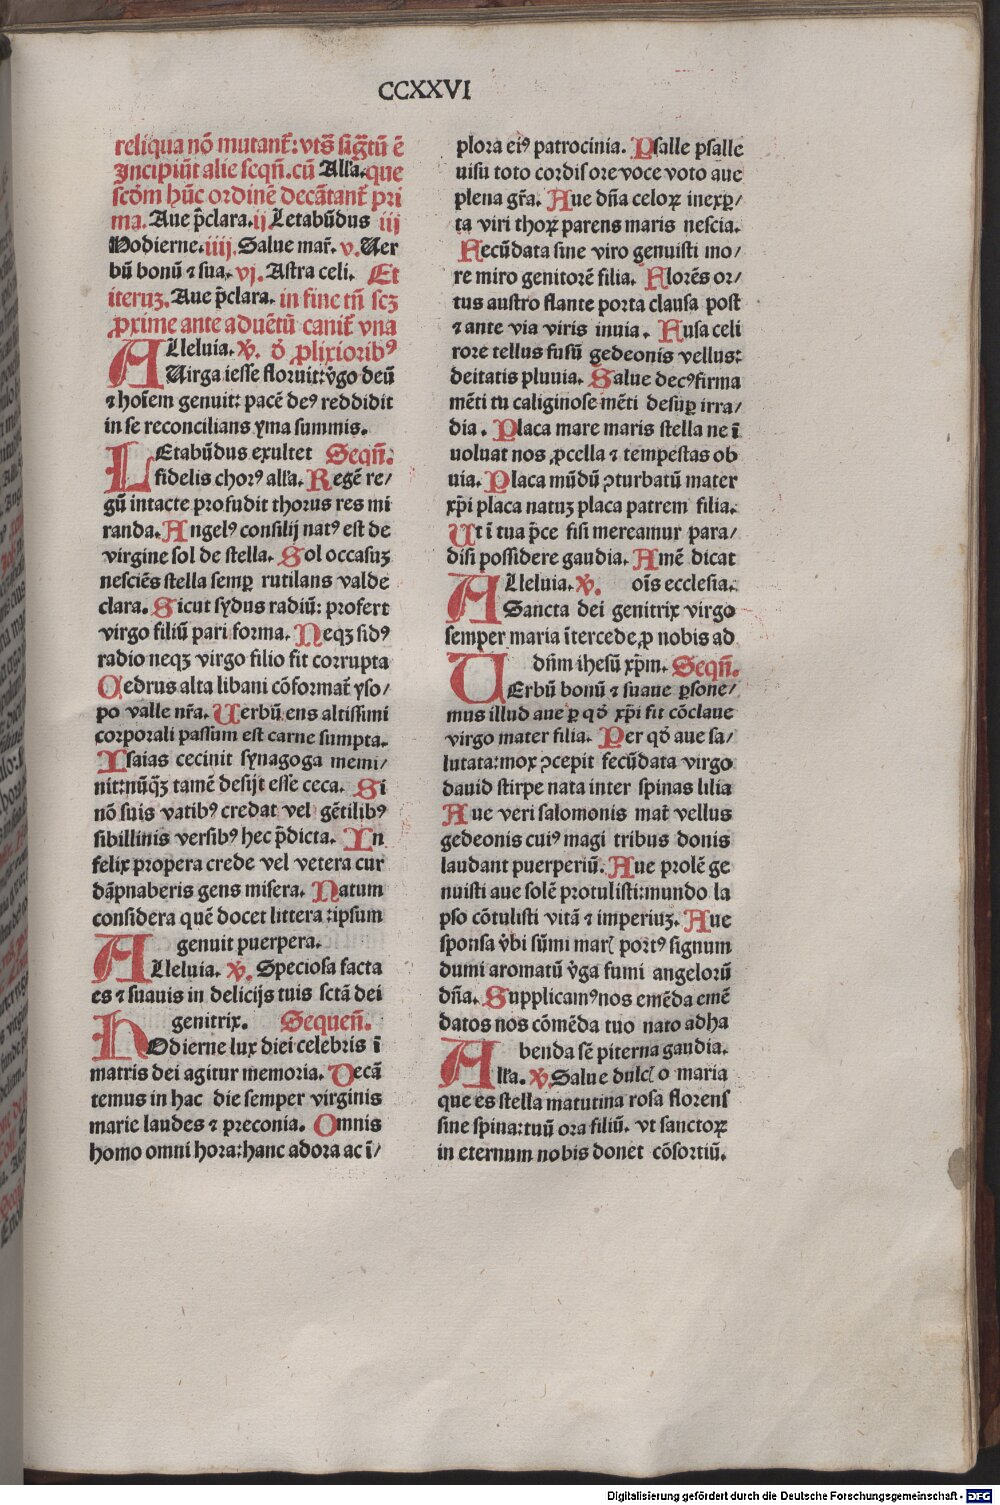 CCXXVI
reliqua nō mutant̄: vts̄ sig̅tū ē
Incipiūt alie seqn̄. cū Alla. que
scd̄m hūc ordinē decātant̄ pri
ma. Aue p̄clara. ij Letabūdus iij
Hodierne. iiij. Salue mat̄. v. Uer
bū bonū ⁊ sua. vj. Astra celi. Et
iteruꝫ. Aue p̄clara. in fine tn̄ scꝫ
ꝓxime ante aduētū canit̄ vna
ALleluia. ℣. d̄ ꝓlixioribꝰ
Uirga iesse floruit: v̄go deū
⁊ hoīem genuit: pacē deꝰ reddidit
in se reconcilians yma summis.
LEtabūdus exultet Seqn̄.
fidelis chorꝰ alla. Regē re/
gū intacte profudit thorus res mi
randa. Angelꝰ consilij natꝰ est de
virgine sol de stella. Sol occasuꝫ
nesciēs stella semꝑ rutilans valde
clara. Sicut sydus radiū: profert
virgo filiū pari forma. Neqꝫ sidꝰ
radio neqꝫ virgo filio fit corrupta
Cedrus alta libani cōformat̄ yso/
po valle nr̄a. Uerbū ens altissimi
corporali passum est carne sumpta.
Isaias cecinit synagoga memi/
nit: nūq̄ꝫ tamē desijt esse ceca. Si
nō suis vatibꝰ credat vel gētilibꝰ
sibillinis versibꝰ hec p̄dicta. In
felix propera crede vel vetera cur
dāpnaberis gens misera. Natum
considera quē docet littera: ipsum
genuit puerpera.
ALleluia. ℣. Speciosa facta
es ⁊ suauis in delicijs tuis sctā dei
genitrix. Sequen̄.
HOdierne lux diei celebris ī
matris dei agitur memoria. Decā
temus in hac die semper virginis
marie laudes ⁊ preconia. Omnis
homo omni hora: hanc adora ac ī/
plora eiꝰ patrocinia. Psalle psalle
uisu toto cordis ore voce voto aue
plena gr̄a. Aue dn̄a celoꝝ inexꝑ/
ta viri thoꝝ parens maris nescia.
Fecūdata sine viro genuisti mo/
re miro genitorē filia. Florēs or/
tus austro flante porta clausa post
⁊ ante via viris inuia. Fusa celi
rore tellus fusū gedeonis vellus:
deitatis pluuia. Salue decꝰ firma
mēti tu caliginose mēti desuꝑ irra/
dia. Placa mare maris stella ne ī
uoluat nos ꝓcella ⁊ tempestas ob
uia. Placa mūdū ꝯturbatū mater
xp̄i placa natuꝫ placa patrem filia.
Ut ī tua p̄ce fisi mereamur para/
disi possidere gaudia. Amē dicat
ALleluia. ℣. oīs ecclesia.
Sancta dei genitrix virgo
semper maria ītercede ꝓ nobis ad
dn̄m ihesū xp̄m. Seqn̄.
UErbū bonū ⁊ suaue ꝑsone/
mus illud aue ꝑ qd̄ xp̄i fit cōclaue
virgo mater filia. Per qd̄ aue sa/
lutata: mox ꝯcepit fecūdata virgo
dauid stirpe nata inter spinas lilia
Aue veri salomonis mat̄ vellus
gedeonis cuiꝰ magi tribus donis
laudant puerperiū. Aue prolē ge
nuisti aue solē protulisti: mundo la
pso cōtulisti vitā ⁊ imperiuꝫ. Aue
sponsa v̄bi sūmi marꝭ portꝰ signum
dumi aromatū v̄ga fumi angelorū
dn̄a. Supplicamꝰ nos emēda emē
datos nos cōmēda tuo nato adha
benda sēpiterna gaudia.
Alla. ℣. Salue dulcꝭ o maria
que es stella matutina rosa florens
sine spina: tuū ora filiū. vt sanctoꝝ
in eternum nobis donet cōsortiū.
Digitalisierung gefördert durch die Deutsche Forschungsgemeinschaft - DFG